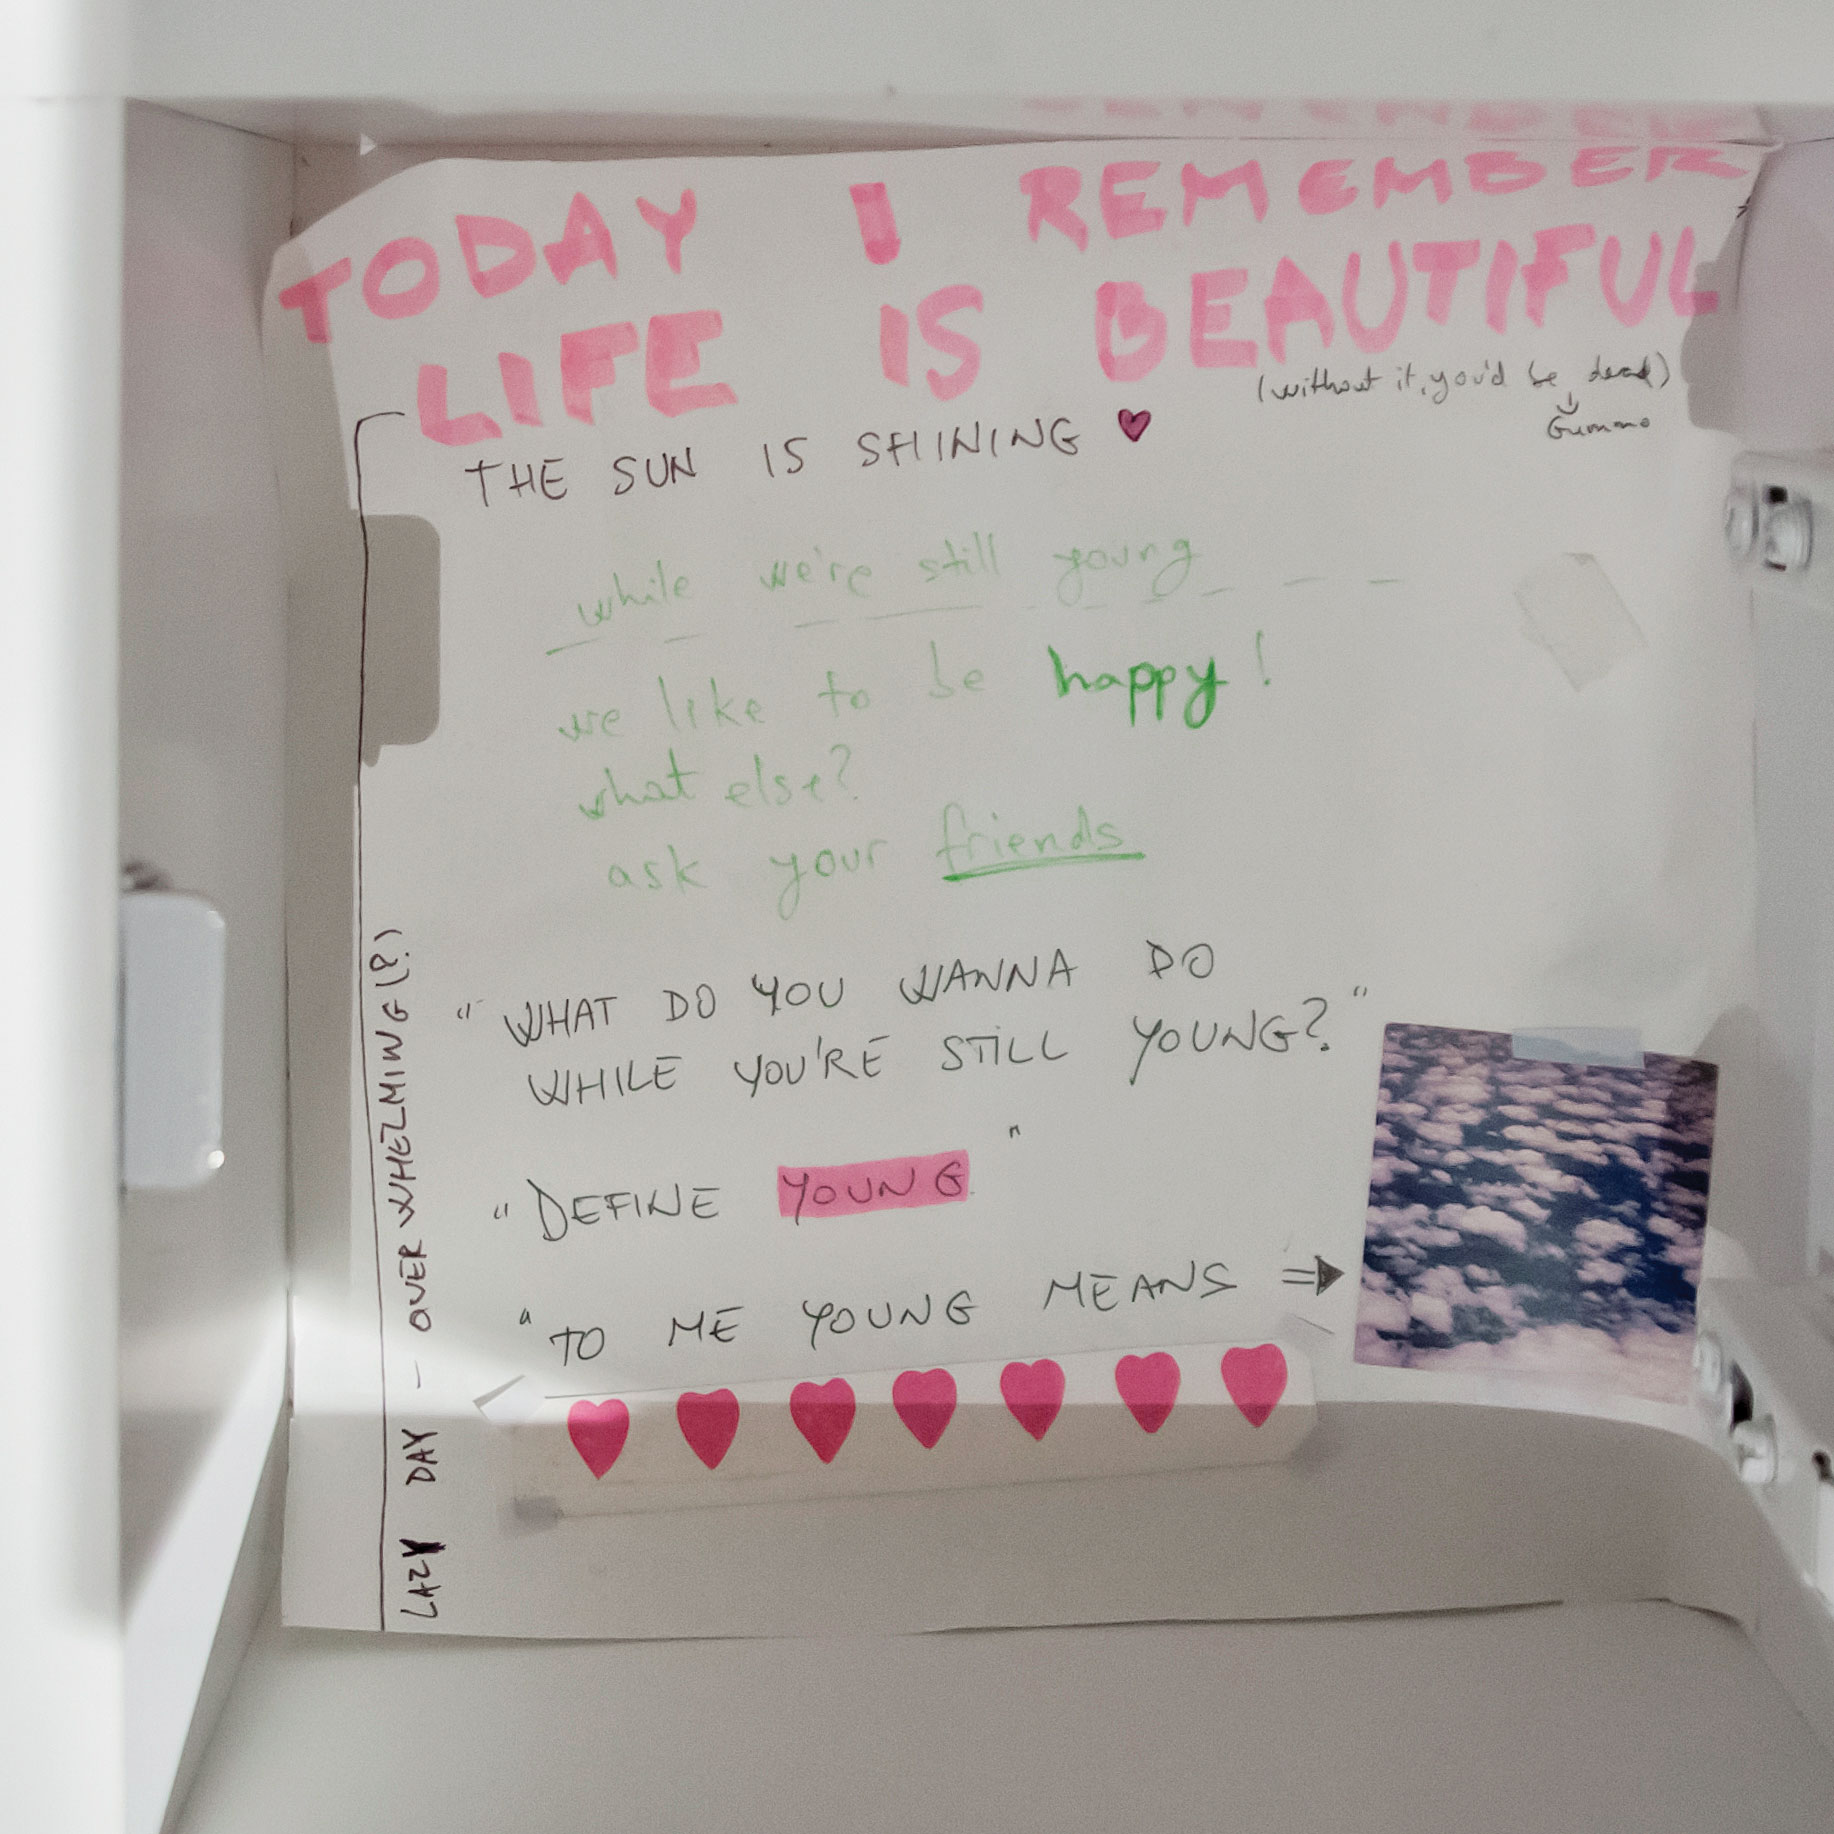 TODAY I REMEMBER
LIFE IS BEAUTIFUL
(without it, you'd be dead)
Gummo
THE SUN IS SHINING ♥
while we're still young
we like to be happy!
what else?
ask your friends
"WHAT DO YOU WANNA DO
WHILE YOU'RE STILL YOUNG?"
"DEFINE YOUNG"
"TO ME YOUNG MEANS ⇒
LAZY DAY – OVERWHELMING(?)